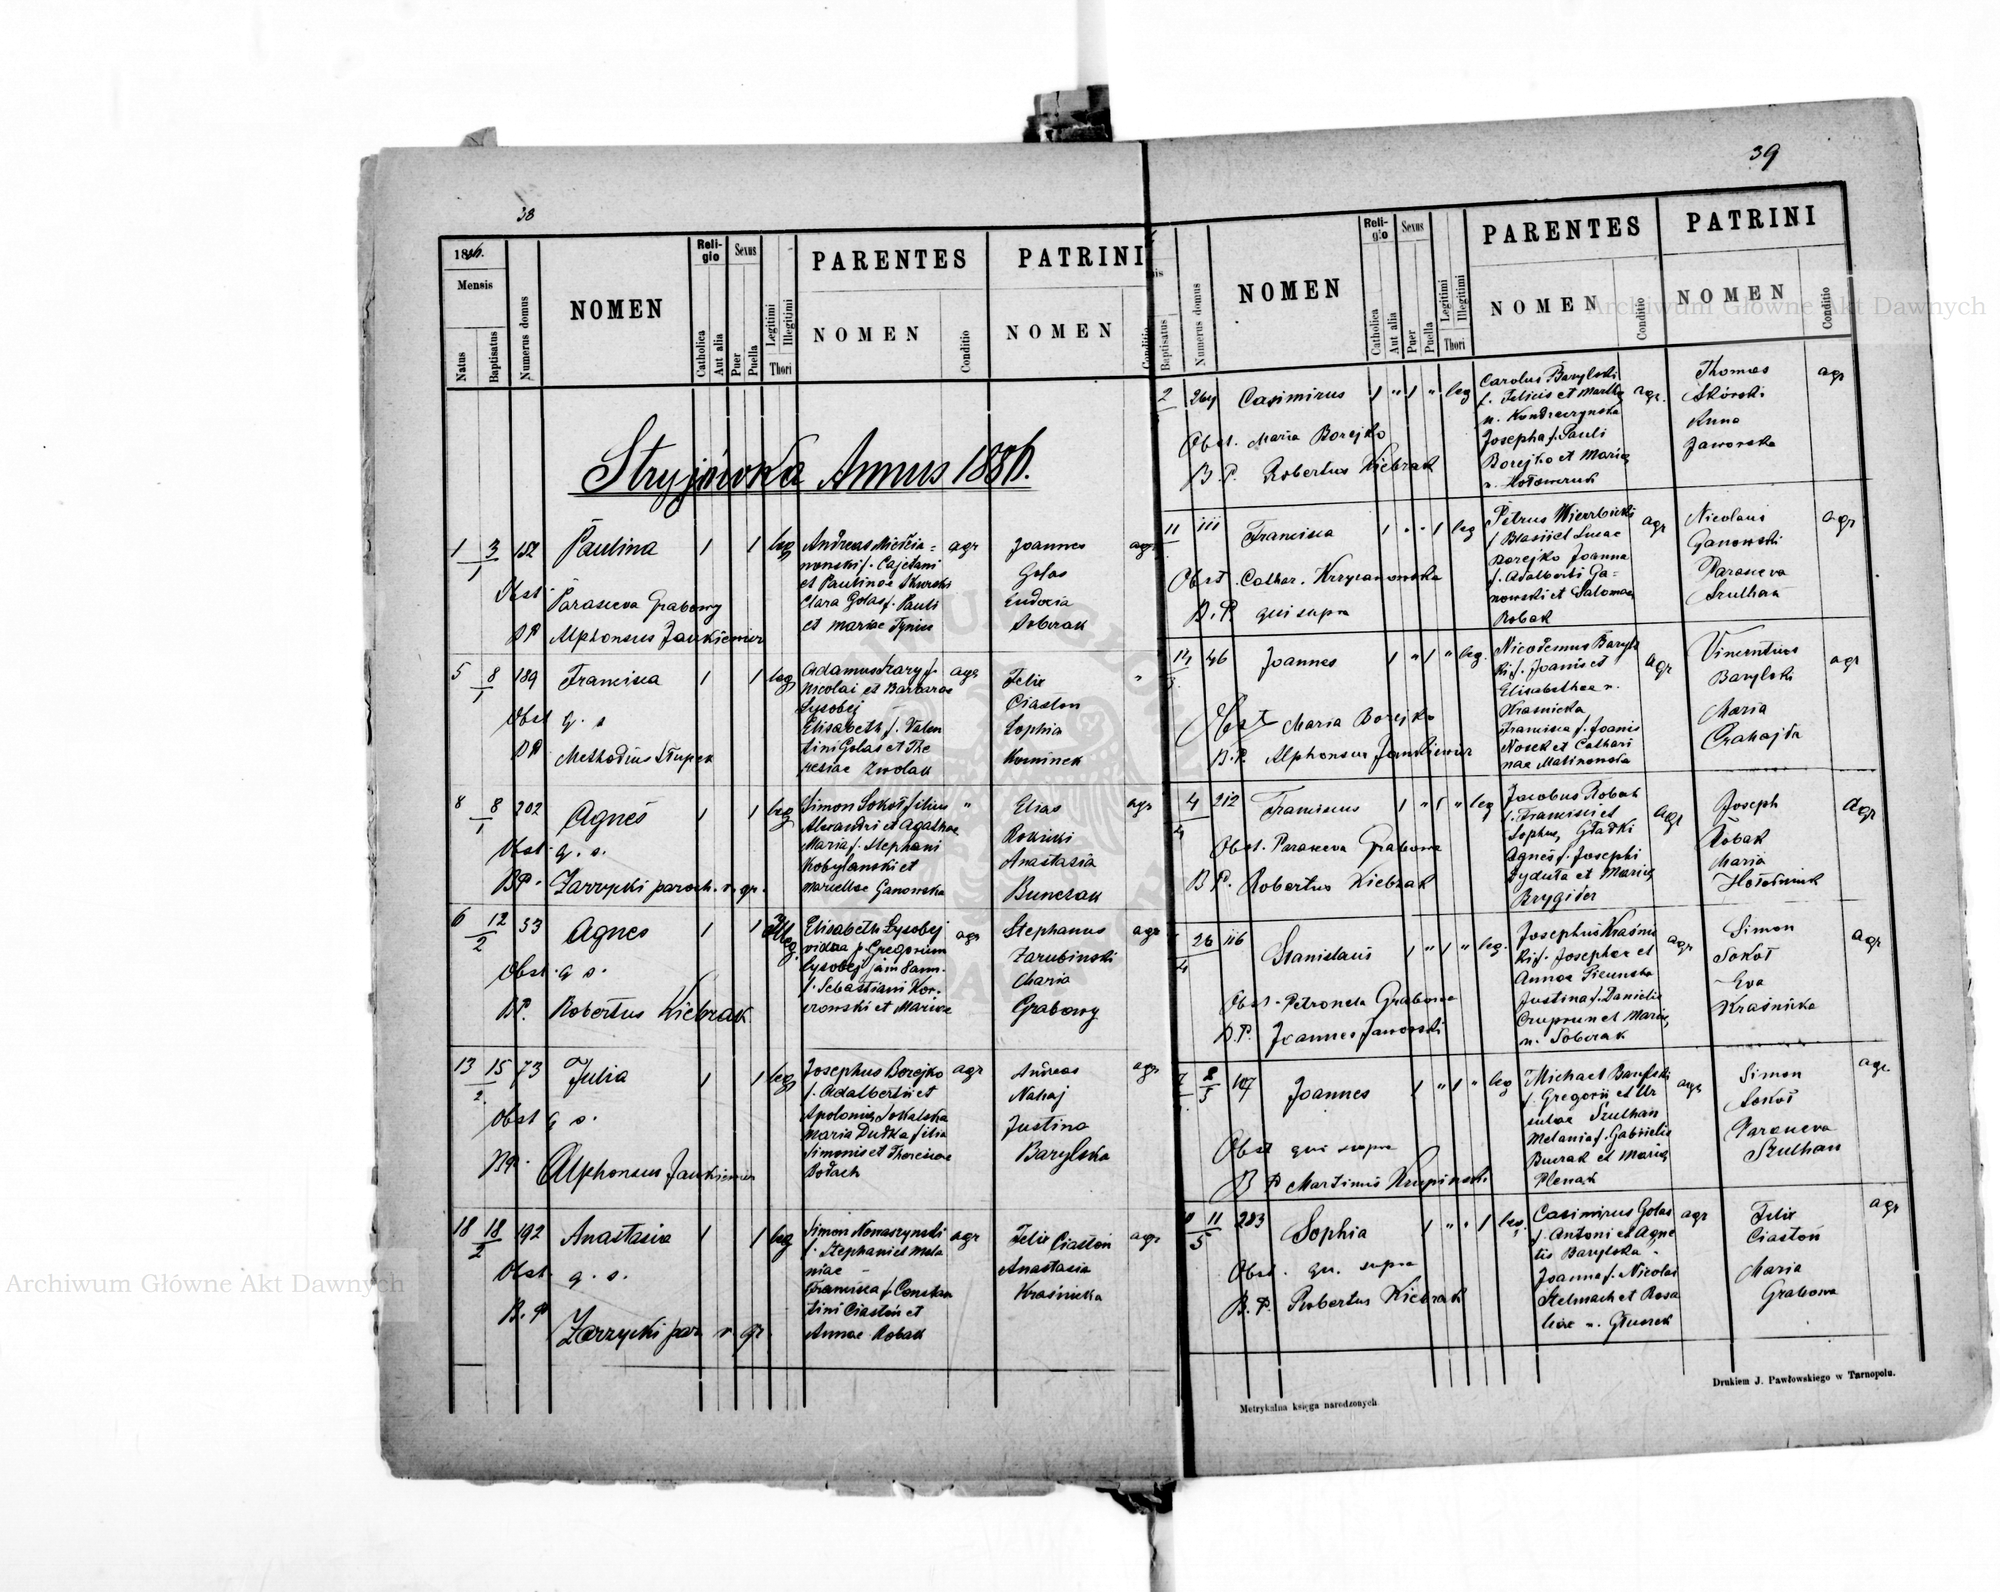 38
39
1886.
Mensis
Natus
Baptisatus
Numerus domus
NOMEN
Religio
Catholica
Aut alia
Sexus
Puer
Puella
Legitimi
Illegitimi
Thori
PARENTES
NOMEN
Conditio
PATRINI
NOMEN
Conditio
Stryjówka Annus 1886.
1 3/1 152 Paulina 1 1 leg
Obst. Parasceva Grabowy
BP Alphonsus Jankiewicz
Andreas
nowski f. Cajetani
et Paulinae Skurski
Clara Golas f. Pauli
et Mariae
agr
Joannes
Golas
Eudocia
Sobczak
agr
5 8/1 189 Francisca 1 1 leg
Obst q. s
BP Methodius Słupek
Adamus f.
Nicolai et Barbarae
Łysobej
Elisabeth f. Valen
tini Golas et The
resiae Zwolak
agr
Felix
Ciastoń
Sophia
Kominek
"
8 8/1 202 Agnes 1 1 leg
Obst. q. s.
BP. Zarzycki paroch. r. gr.
Simon Sokoł filius
Alexandri et Agathae
Maria f. Stephani
Kobylanski et
Marcellae Ganowska
"
Elias
Rokicki
Anastasia
Bunczak
agr
6 12/2 53 Agnes 1 1 Illeg.
Obst. q s.
BP. Robertus Kiebzak
Elisabeth Łysobej
vidua p. Gregorium
Łysobej jam
f. Sebastiani Kor-
et Mariae
agr
Stephanus
Zarubinski
Maria
Grabowy
agr
13 15/2 73 Julia 1 1 leg
Obst q s.
BP. Alphonsus Jankiewicz
Josephus Borejko
f. Adalberti et
Apoloniae Sokalska
Maria Dudka filia
Simonis et Theresiae
Bodach
agr
Andreas
Nahaj
Justina
Barylska
agr
18 18/2 192 Anastasia 1 1 leg
Obst. q. s.
B. P Zarzycki par r. gr.
Simon Nomaszynski
f. Stephani et Mela
niae -
Francisca f. Constan
tini Ciastoń et
Annae Robak
agr
Felix Ciastoń
Anastasia
Kraśnicka
agr
Baptisatus
Numerus domus
NOMEN
Religio
Catholica
Aut alia
Sexus
Puer
Puella
Legitimi
Illegitimi
Thori
PARENTES
NOMEN
Conditio
PATRINI
NOMEN
Conditio
2 264 Casimirus 1 " 1 " leg
Obst. Maria Borejko
B. P. Robertus Kiebzak
Carolus Barylski
f. Felicis et Martha
n. Kondraczynska
Josepha f. Pauli
Borejko et Maria
n.
agr.
Thomas
Skórski
Anna
Jaworska
agr
11 111 Francisca 1 " " 1 leg
Obst. Cathar. Krzyzanowska
B. P. qui supra
Petrus Wierzbicki
f. Blasii et Lucae
Borejko Joanna
f. Adalberti Ga-
nowski et Salomae
Robak
agr
Nicolaus
Ganowski
Parasceva
Szulhan
agr
14/3 46 Joannes 1 " 1 " leg.
Obst Maria Borejko
B. P. Alphonsus Jankiewicz
Nicodemus Baryls
ki f. Joannis et
Elisabethae n.
Krasnicka
Francisca f. Joannis
Nosek et Cathari
nae Malinowska
agr
Vincentius
Barylski
Maria
Czahajda
agr
4/4 212 Franciscus 1 " 1 " leg
Obst. Parasceva Grabowa
B P. Robertus Kiebzak
Jacobus Robak
f. Francisci et
Sophia Gładki
Agnes f. Josephi
Dyduła et Maria
Brygider
agr
Joseph
Robak
Maria
Hołodniuk
agr
26/4 116 Stanislaus 1 " 1 " leg.
Obst. Petronela Grabowa
B. P. Joannes Jaworski
Josephus Kraśnic
ki f. Josephi et
Annae
Justina f. Danielis
et Maria
n. Sobczak
agr
Simon
Sokoł
Eva
Kraśnicka
agr
7 8/5 107 Joannes 1 " 1 " leg
Obst qui supra
B P Martinus Krupinski
Michael Barylski
f. Gregorii et Ur
sulae Szulhan
Melania f. Gabrielis
Burak et Maria
Plenak
agr
Simon
Sokoł
Parasceva
Szulhan
agr
11/5 283 Sophia 1 " " 1 leg.
Obst. qu. supra
B. P. Robertus Kiebzak
Casimirus Golas
f. Antoni et Agne
tis Barylska -
Joanna f. Nicolai
Stelmach et Rosa
liae n.
agr
Felix
Ciastoń
Maria
Grabowa
agr
Metrykalna księga narodzonych.
Drukiem J. Pawłowskiego w Tarnopolu.
Archiwum Główne Akt Dawnych
Archiwum Główne Akt Dawnych